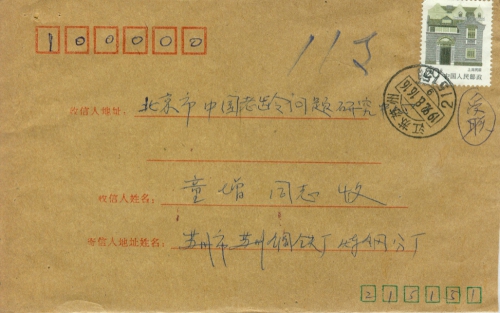 100000
113
中国人民邮政
收信人地址: 北京市中国老龄问题研究
江苏苏州
收信人姓名: 童增 同志 收
寄信人地址姓名: 苏州市苏州钢铁厂炼钢分厂
215151